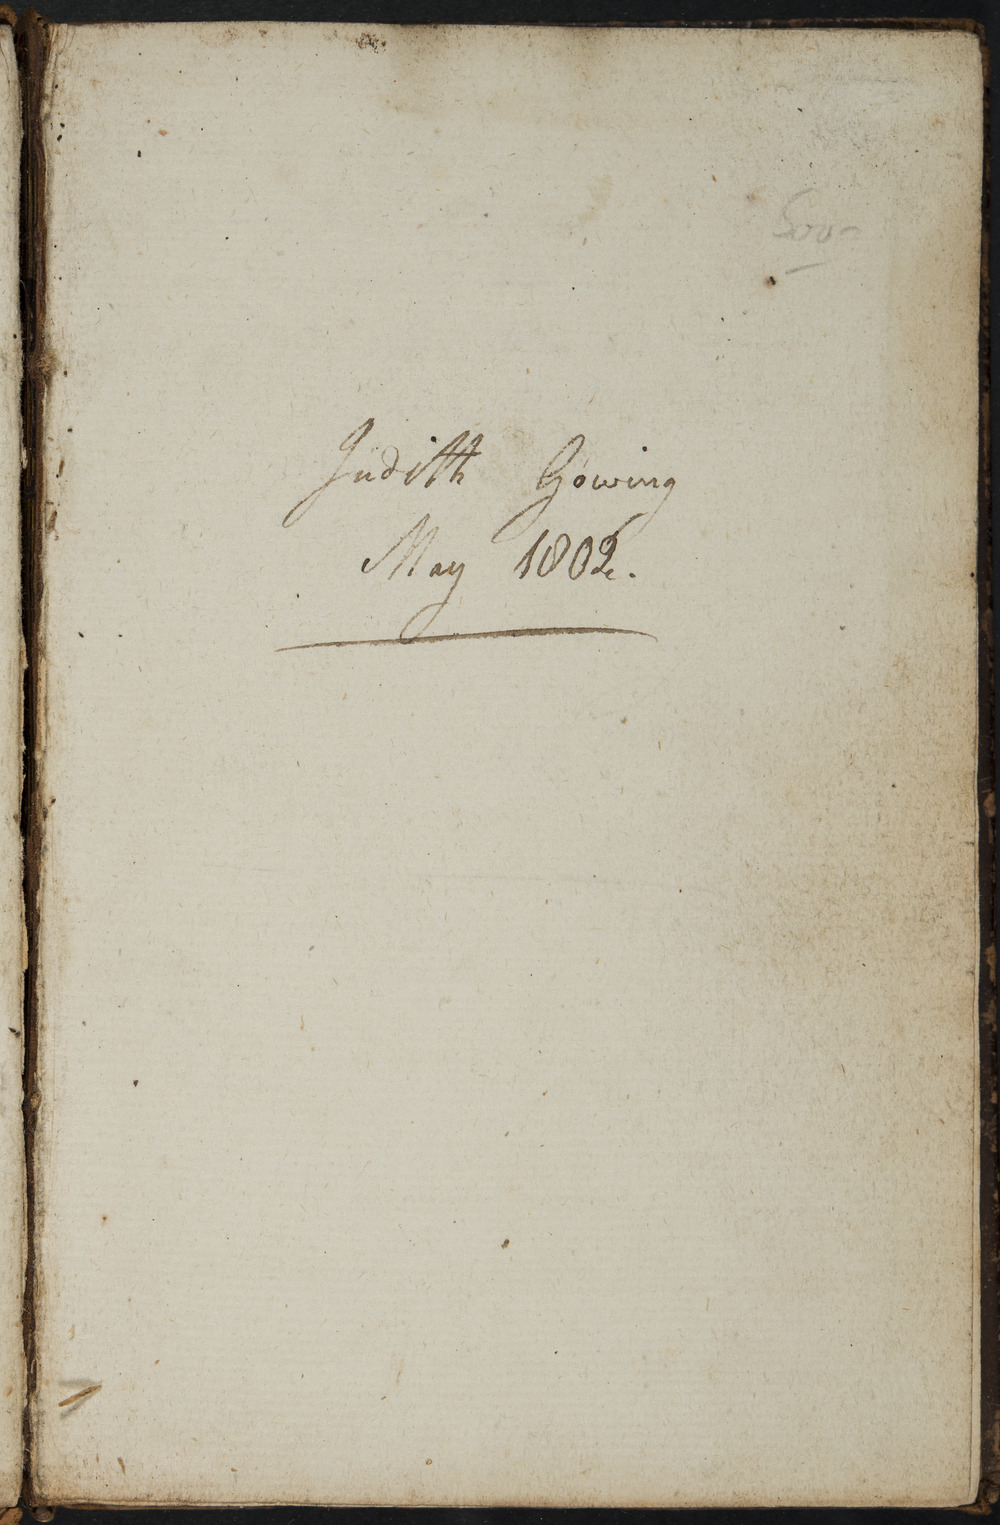 Judith Gowing
May 1802.